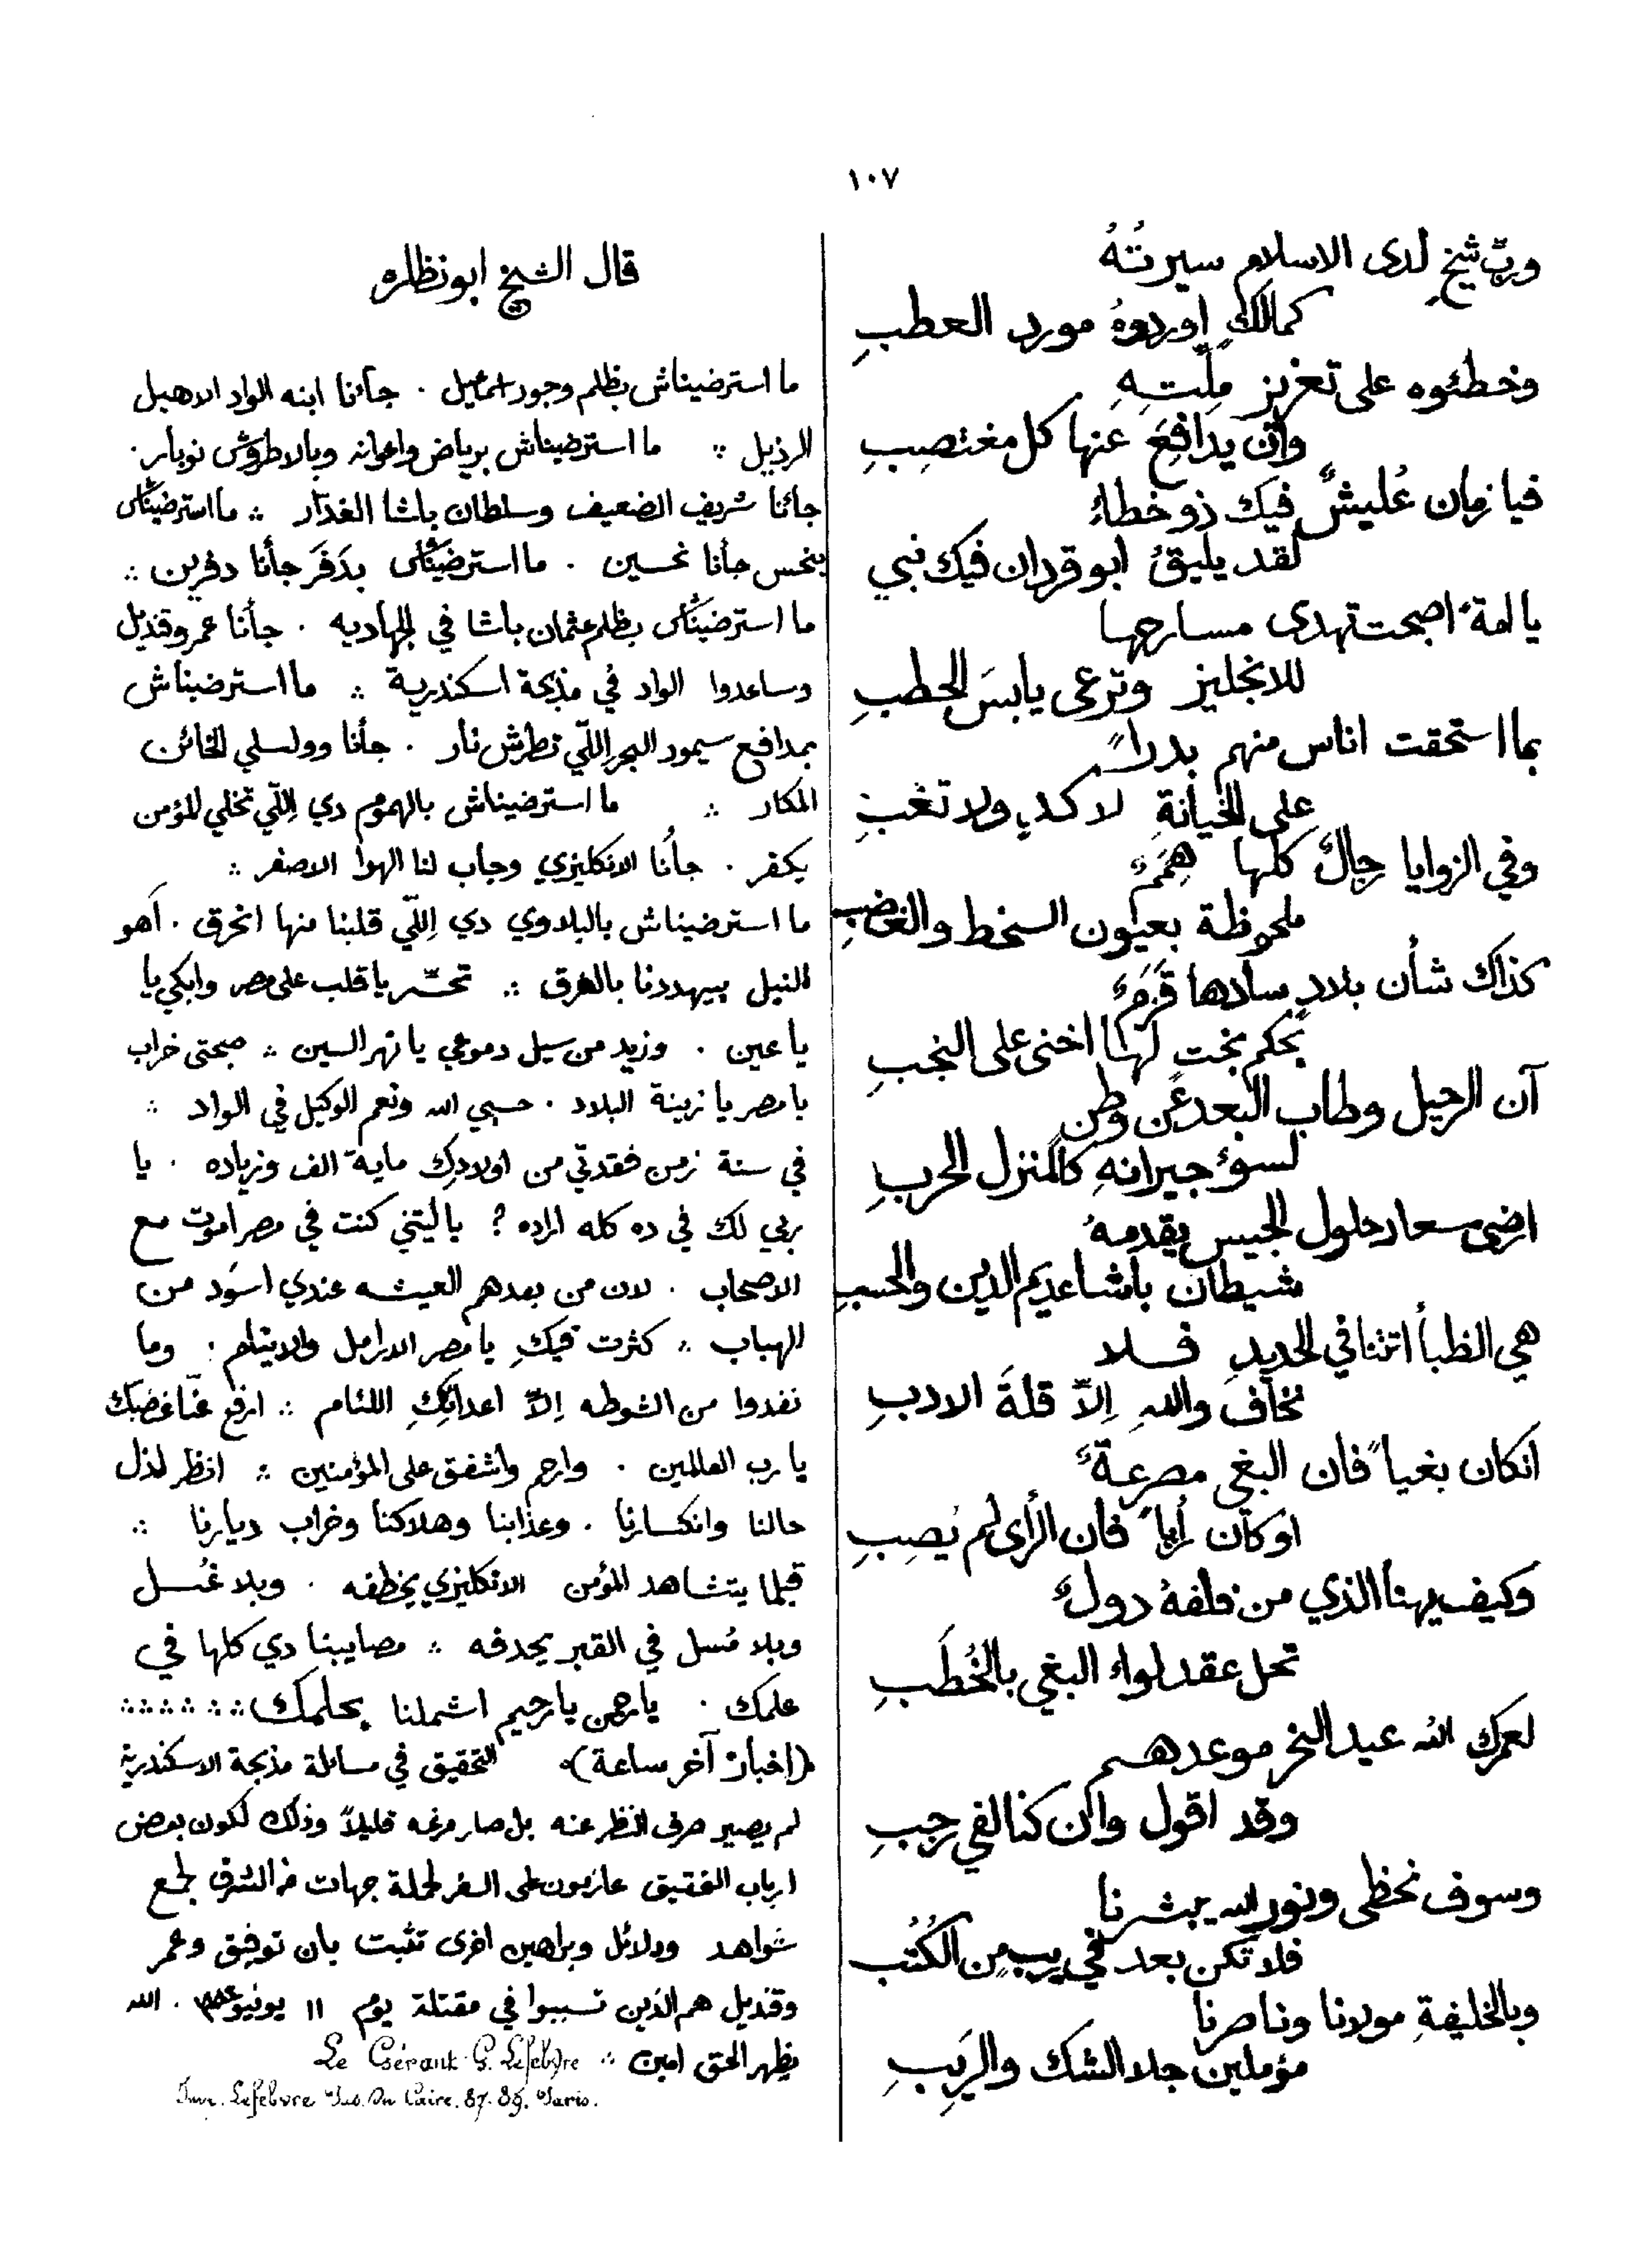 ١٠٧
وربّ شيخٍ لدى الاسلام سيرتُهُ
كمالكٍ اوردوهُ مورد العطبِ
وخطئوه على تعزيز مِلّتهِ
وأن يدافِعَ عنها كل مغتصِبِ
فيا زمان عُليشٌ فيك ذو خطاءٍ
لقد يليقُ ابو قردان فيك نبي
يا امة اصبحت تهدى مسارحها
للانجليز وترعى يابسَ الحطبِ
بما استحقت اناس منهم بدراً
على الخيانةِ لا كدٍ ولا تعَبِ
وفي الزوايا رجالٌ كلها هِمَمٌ
ملحوظة بعيون السخط والغضبِ
كذاك شأن بلادٍ سادها قَزَمٌ
بحكم بختٍ لها اخنى على النجبِ
آن الرحيل وطاب البعد عن وطن
لسوء جيرانهِ كالمنزل الخربِ
ارضى سعار حلول الجيس يقدمهُ
شيطان باشا عديم الدين والحسبِ
هي الظبأ اتتنا في الحديدِ فلا
نخاف واللهِ إلاّ قلةَ الادبِ
انكان بغياً فان البغي مصرعةٌ
او كان رأياً فان الرأى لم يُصِبِ
وكيف يهنأ الذي من خلفهُ دولٌ
تحل عقد لواء البغي بالخُطَبِ
لعمرك الله عيد النحر موعدهم
وقد اقول وان كنا لفي رجبِ
وسوف نحظى ونور الله يبشرنا
فلا تكن بعد في ريبٍ من الكُتُبِ
وبالخليفةِ مولانا وناصرنا
مؤملين جلاء الشك والريَبِ
قال الشيخ ابو نظاره
ما استرضيناش بظلم وجور اسمعيل . جأنا ابنه الواد الاهبل
الرذيل ∴ ما استرضيناش برياض واعوانه وبالاطروش نوبار .
جائنا شريف الضعيف وسلطان باشا الغدّار ∴ ما استرضيناش
بنحس جأنا نحسين . ما استرضيناش بدَفَر جأنا دفرين ∴
ما استرضيناش بظلم عثمان باشا في الجهاديه . جأنا عمر وقنديل
وساعدوا الواد في مذبحة اسكندرية ∴ ما استرضيناش
بمدافع سيمور البحر اللّي تطرش نار . جأنا وولسلي الخائن
المكار ∴ ما استرضيناش بالهموم دي اللّي تخلي المؤمن
يكفر . جأنا الانكليزي وجاب لنا الهوا الاصفر ∴
ما استرضيناش بالبلاوي دي اِللّي قلبنا منها انحرق . اَهو
النيل بيهددنا بالغرق ∴ تحسّر يا قلب على مصر وابكي يا
يا عين . وزيد من سيل دموعي يا نهر السين ∴ صبحتى خراب
يا مصر يا زينة البلاد . حسبي الله ونعم الوكيل في الواد ∴
في سنة زمن فقدتي من اولادِك ماية الف وزياده . يا
ربي لك في ده كله اراده ؟ يا ليتني كنت في مصر اموت مع
الاصحاب . لان من بعدهم العيشه عندي اسوَد من
الهباب ∴ كثرت فيكِ يا مصر الارامل والايتام . وما
نفدوا من الشوطه اِلاّ اعدائكِ اللئام ∴ ارفع عنّا غضبك
يا رب العالمين . وارحم واشفق على المؤمنين ∴ انظر لذل
حالنا وانكسارنا . وعذابنا وهلاكنا وخراب ديارنا ∴
قبلما يتشاهد المؤمن الانكليزي يخطفه . وبلا غُسل
وبلا مُسل في القبر يحدفه ∴ مصايبنا دي كلها في
علمك . يا رحمن يا رحيم اشملنا بحلمك ∴ ∴ ∴ ∴ ∴ ∴
(اخبار آخر ساعة) التحقيق في مسائلة مذبحة الاسكندرية
لم يصير صرف النظر عنه بل صار مرغه قليلاً وذلك لكون بعض
ارباب التحقيق عازمون على السفر لجملة جهات من الشرق لجمع
شواهد ودلائل وبراهين اخرى تثبت بان توفيق وعمر
وقنديل هم الذين تسببوا في مقتلة يوم ١١ يونيو . الله
يظهر الحق امين ∴ Le Gérant G. Lefebvre
Imp. Lefebvre Pas. du Caire. 87-89. Paris.